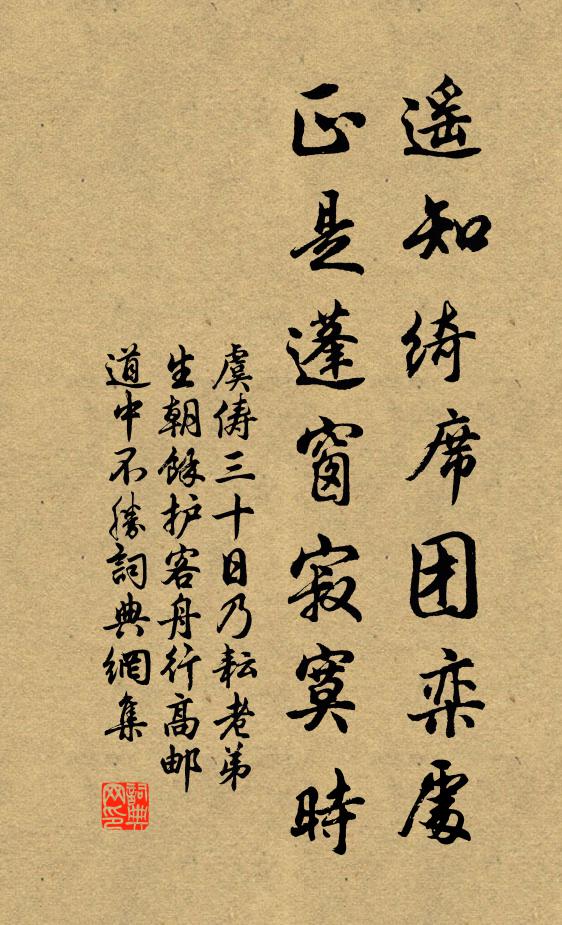 遥知綺席团栾處
正是蓬窗寂寞時
虞俦三十日乃耘老弟
生朝餘护客舟行高邮
道中不勝詞典網集
詞典网印